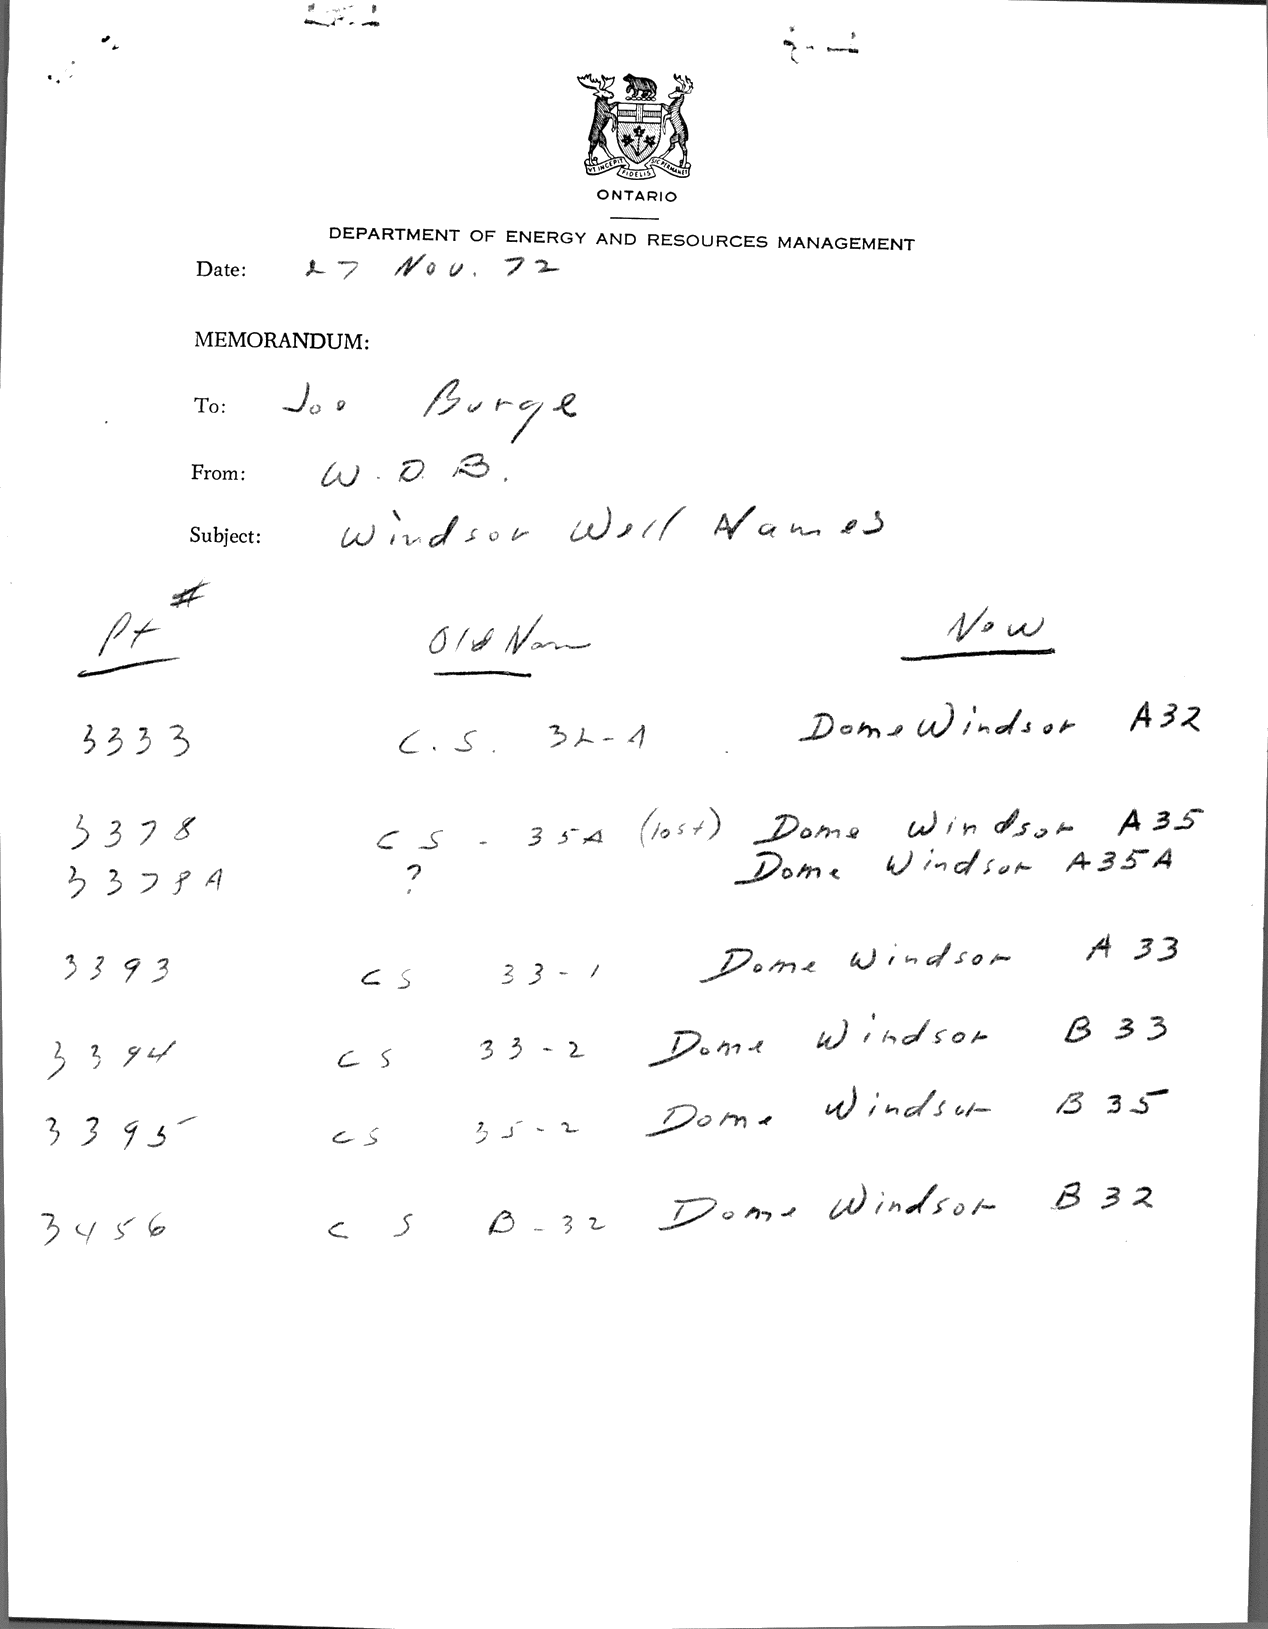 VT INCEPIT FIDELIS SIC PERMANET
ONTARIO
DEPARTMENT OF ENERGY AND RESOURCES MANAGEMENT
Date: 27 Nov. 72
MEMORANDUM:
To: Joe Burge
From: W. D. B.
Subject: Windsor Well Names
Pt # Old Nam Now
3333 C. S. 32-A Dome Windsor A32
3378 CS - 35A (lost) Dome Windsor A35
3378A ? Dome Windsor A35A
3393 CS 33-1 Dome Windsor A 33
3394 CS 33-2 Dome Windsor B 33
3395 CS 35-2 Dome Windsor B 35
3456 CS B-32 Dome Windsor B 32